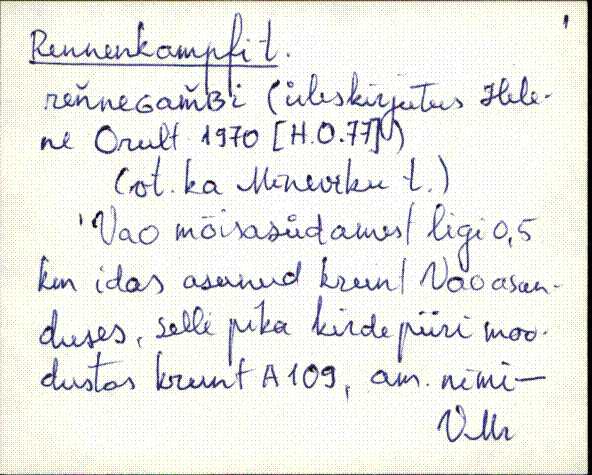 1
Rennenkampfi t.
reňneGam̆Bi (üleskirjutus Hele-
ne Orult 1970 [H.O.77])
(vt. ka Mineviku t.)
'Vao mõisasüdamest ligi 0,5
km idas asunud krunt Vao asun-
duses, selle pika kirdepiiri moo-
dustas krunt A 109, am. nimi—
VMr